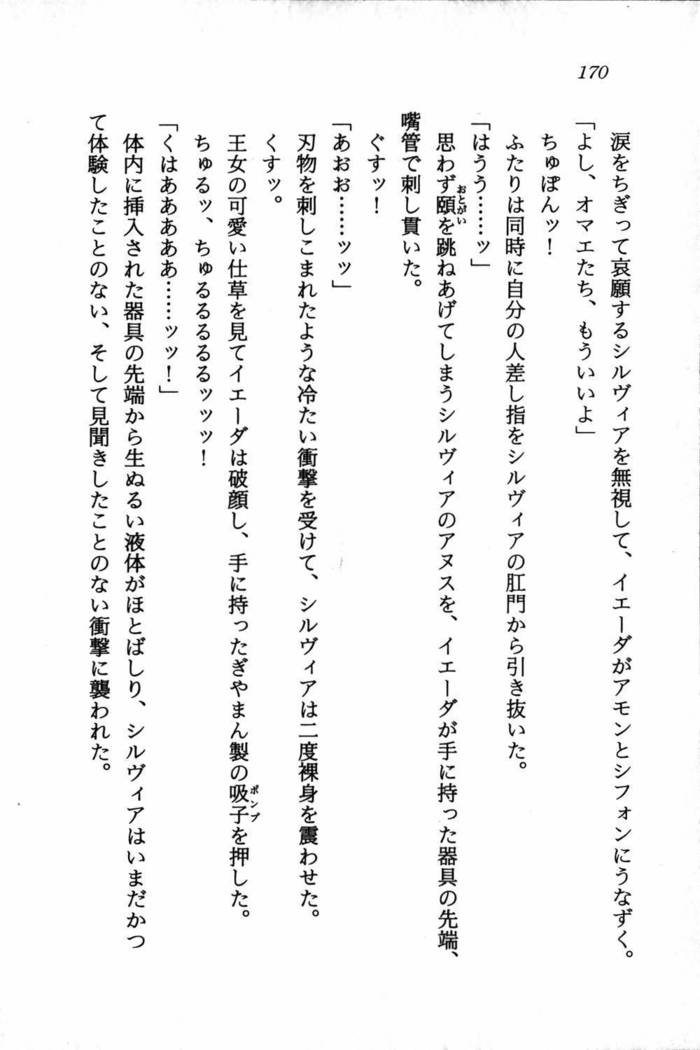 170
涙をちぎって哀願するシルヴィアを無視して、イエーダがアモンとシフォンにうなずく。
「よし、オマエたち、もういいよ」
ちゅぽんッ！
ふたりは同時に自分の人差し指をシルヴィアの肛門から引き抜いた。
「はうう……ッ」
思わず頤おとがいを跳ねあげてしまうシルヴィアのアヌスを、イエーダが手に持った器具の先端、
嘴管で刺し貫いた。
ぐすッ！
「あおお……ッッ」
刃物を刺しこまれたような冷たい衝撃を受けて、シルヴィアは二度裸身を震わせた。
くすッ。
王女の可愛い仕草を見てイエーダは破顔し、手に持ったぎやまん製の吸子ポンプを押した。
ちゅるッ、ちゅるるるるるッッッ！
「くはああああぁ……ッッ！」
体内に挿入された器具の先端から生ぬるい液体がほとばしり、シルヴィアはいまだかつ
て体験したことのない、そして見聞きしたことのない衝撃に襲われた。